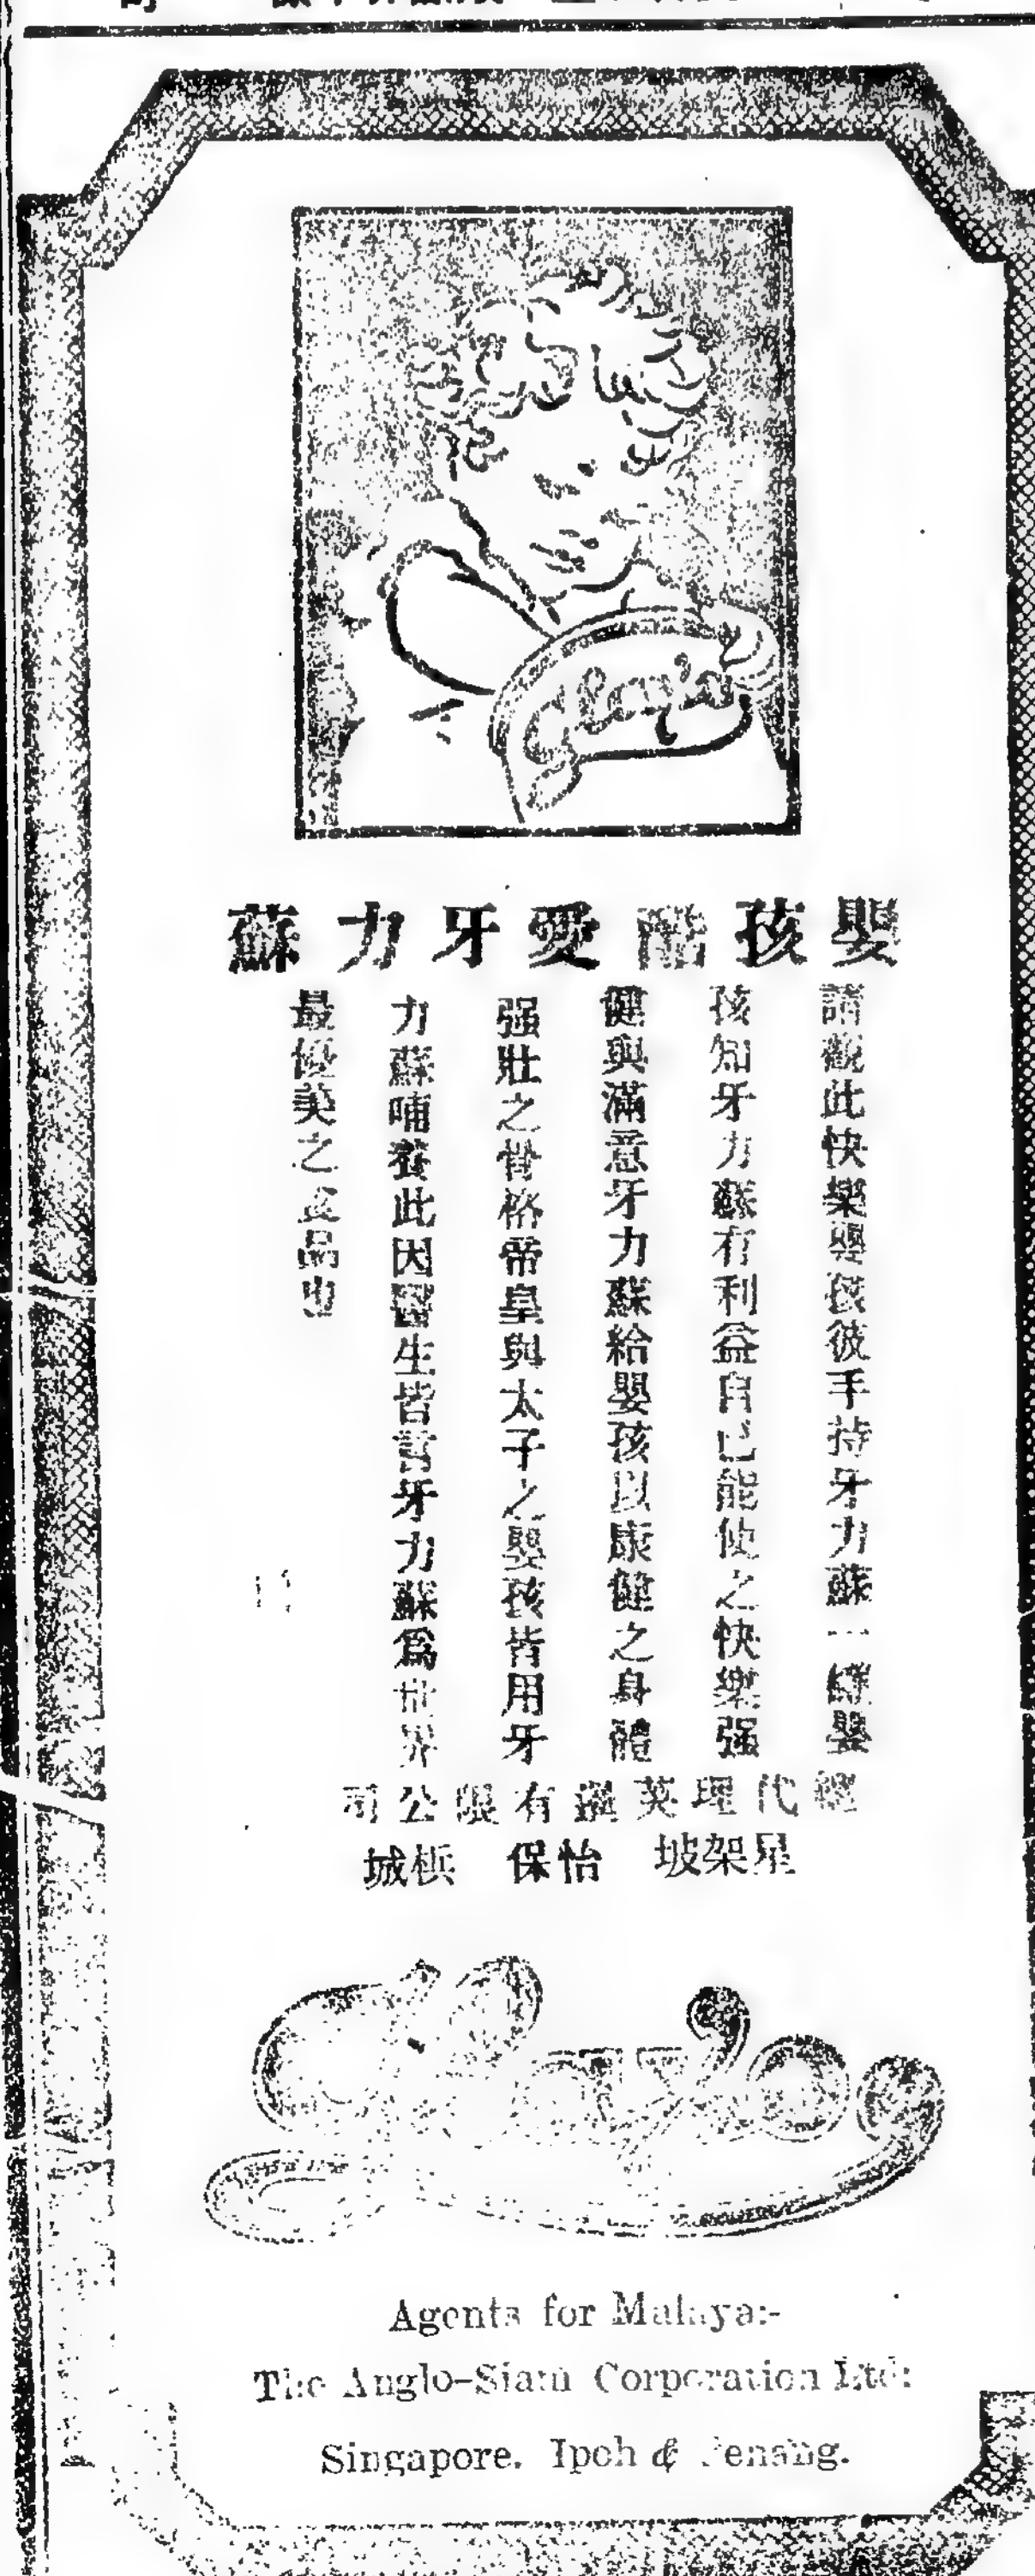 Glaxo
嬰孩酷愛牙力蘇
請觀此快樂嬰孩彼手持牙力蘇一罐嬰
孩知牙力蘇有利益自己能使之快樂强
健與滿意牙力蘇給嬰孩以康健之身體
强壯之骨格帝皇與太子之嬰孩皆用牙
力蘇哺養此因醫生皆言牙力蘇爲世界
最優美之食品也
總代理英暹有限公司
星架坡 怡保 梹城
Glaxo
Agents for Malaya:-
The Anglo-Siam Corporation Ltd:
Singapore. Ipoh & Penang.